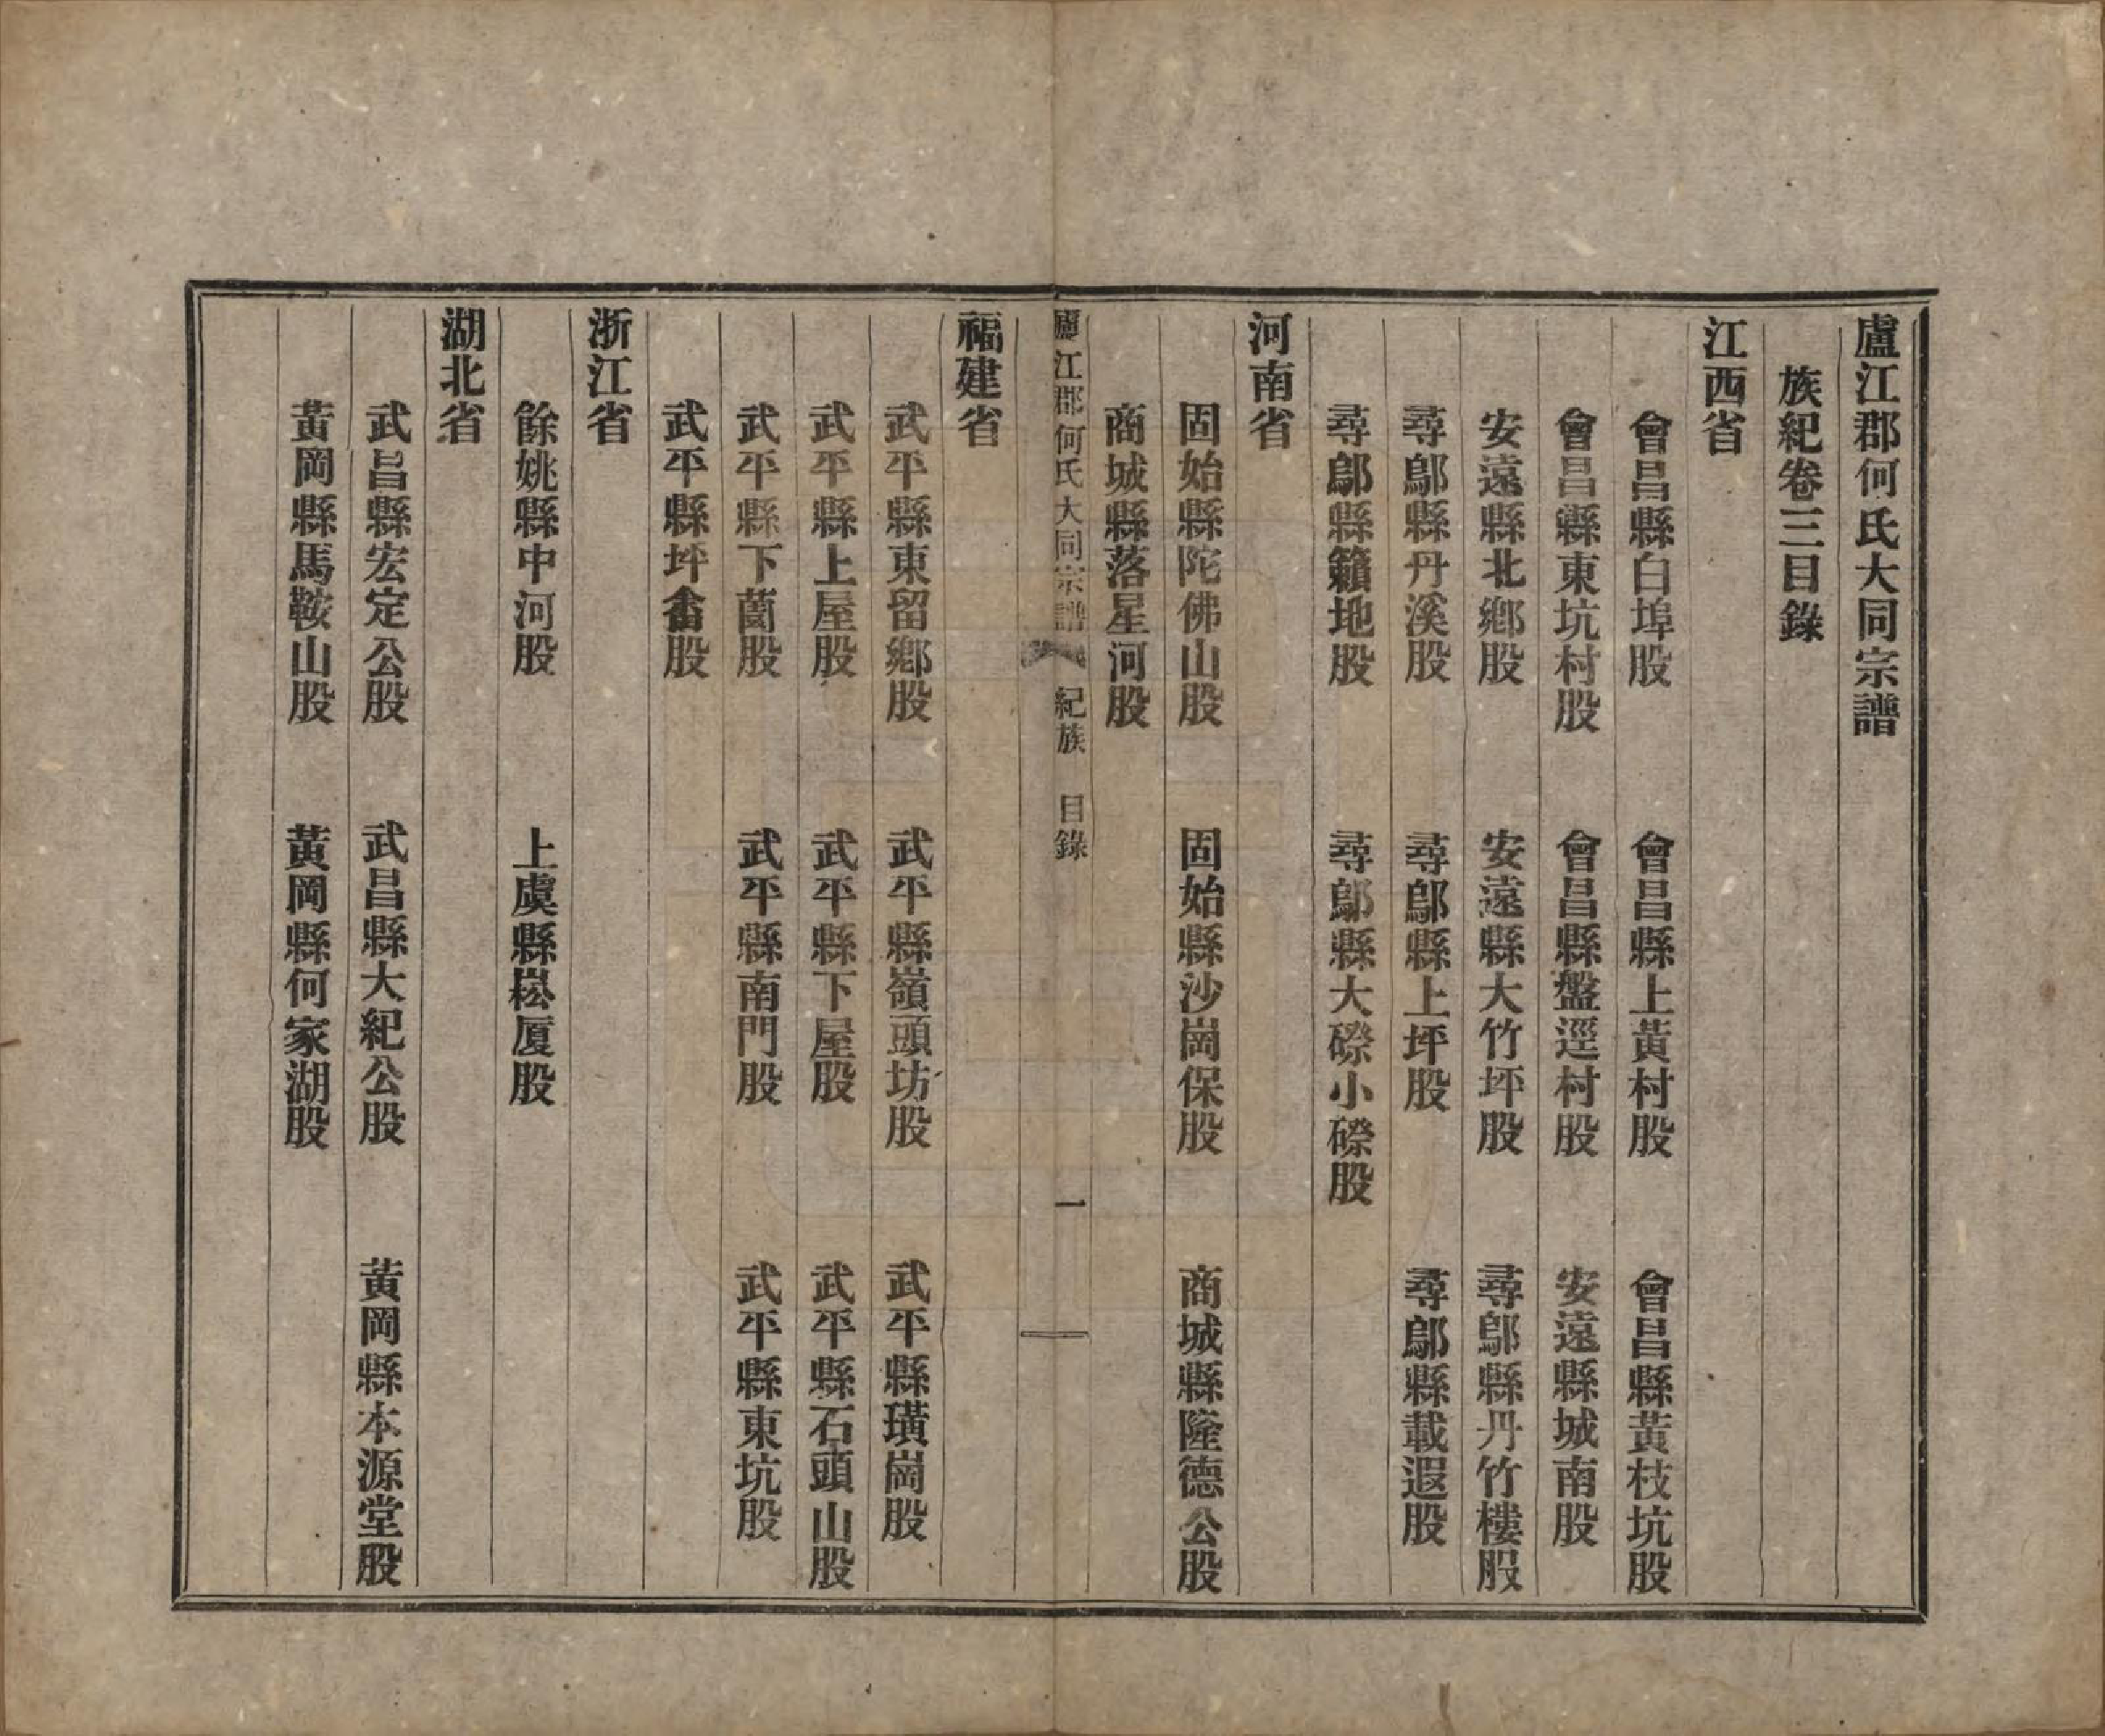 盧江郡何氏大同宗譜
族紀卷三目錄
江西省
會昌縣白埠股 會昌縣上黃村股 會昌縣黃枝坑股
會昌縣東坑村股 會昌縣盤逕村股 安遠縣城南股
安遠縣北鄉股 安遠縣大竹坪股 尋鄔縣丹竹樓股
尋鄔縣丹溪股 尋鄔縣上坪股 尋鄔縣載遐股
尋鄔縣籟地股 尋鄔縣大磜小磜股
河南省
固始縣陀佛山股 固始縣沙崗保股 商城縣隆德公股
商城縣落星河股
廬江郡何氏大同宗譜 紀族 目錄 一
福建省
武平縣東留鄉股 武平縣嶺頭坊股 武平縣璜崗股
武平縣上屋股 武平縣下屋股 武平縣石頭山股
武平縣下菌股 武平縣南門股 武平縣東坑股
武平縣坪畬股
浙江省
餘姚縣中河股 上虞縣崧厦股
湖北省
武昌縣宏定公股 武昌縣大紀公股 黃岡縣本源堂股
黃岡縣馬鞍山股 黃岡縣何家湖股